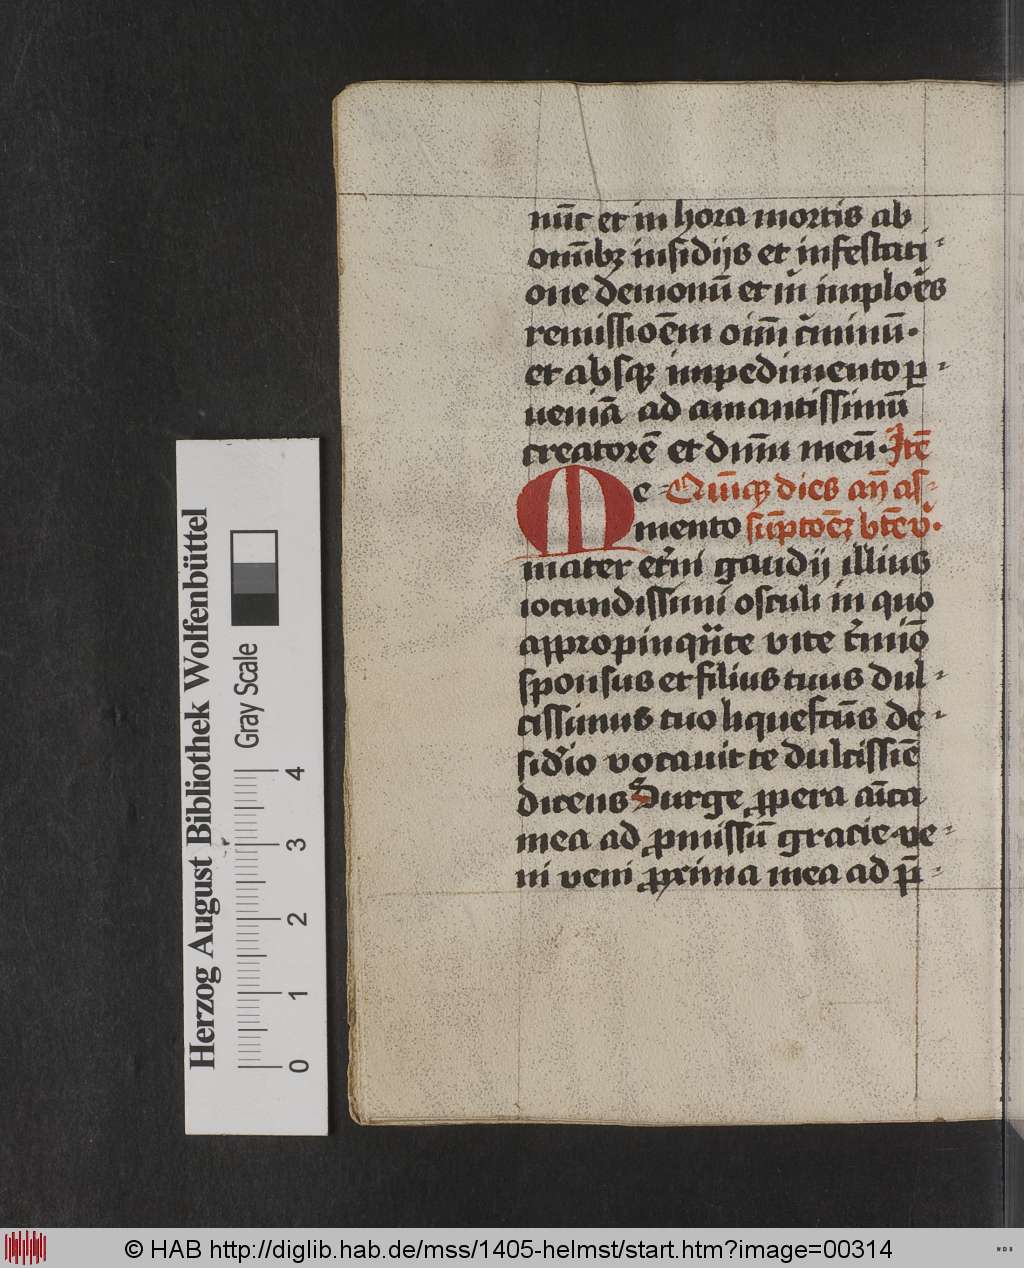 nūc et in hora mortis ab
omībꝫ insidijs et infestati-
one demonū et in implor̄es
remissioēm oim̄ cͥminū·
et absqꝫ impedimento ꝑ-
ueniā ad amantissimū
creatorē et dnm̄ meū· Itē
Me- Quīqꝫ dies an̄ as-
mento sūptoēꝫ bte v̄·
mater et'ni gaudij illius
iocundissimi osculi in quo
appropinqͣte vite t'miō
sponsus et filius tuus dul-
cissimus tuo liquefctūs de-
sid'io vocauit te dulcissiē
dicens Surge ꝓpera aīca
mea ad ꝓmissū gracie ve-
ni veni ꝓxima mea ad p̄-
Herzog August Bibliothek Wolfenbüttel
Gray Scale
0 1 2 3 4
© HAB http://diglib.hab.de/mss/1405-helmst/start.htm?image=00314